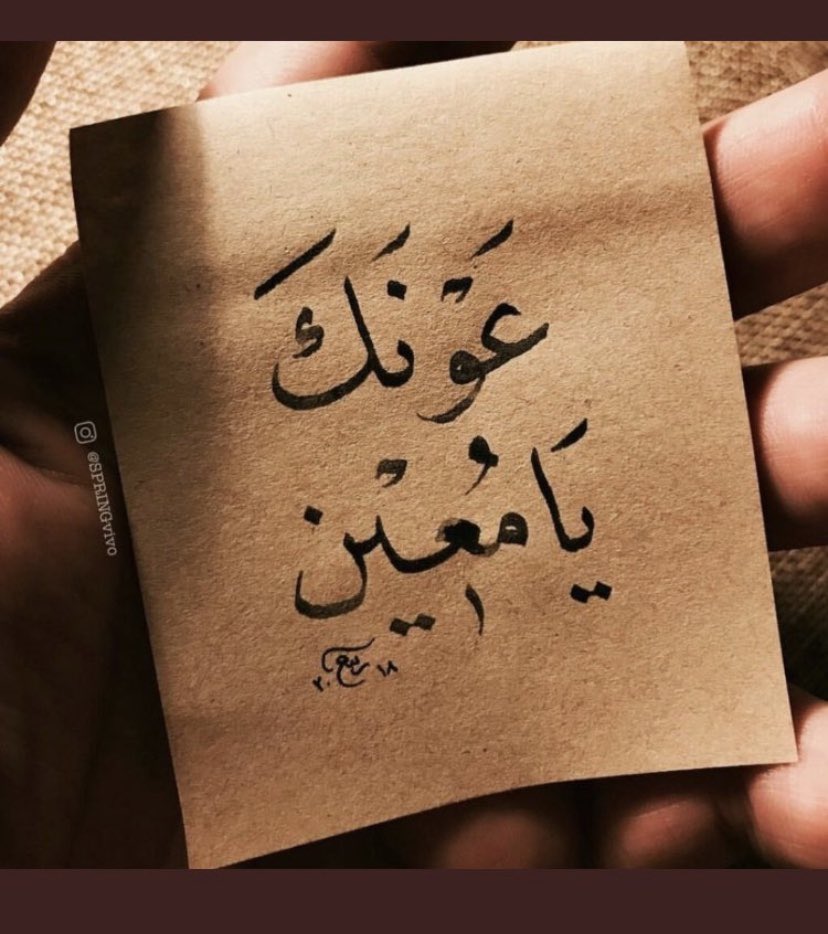 عَوْنَكَ
يَا مُعِيْن
ربيع
٢٠ ١٨
@SPRING.vivo